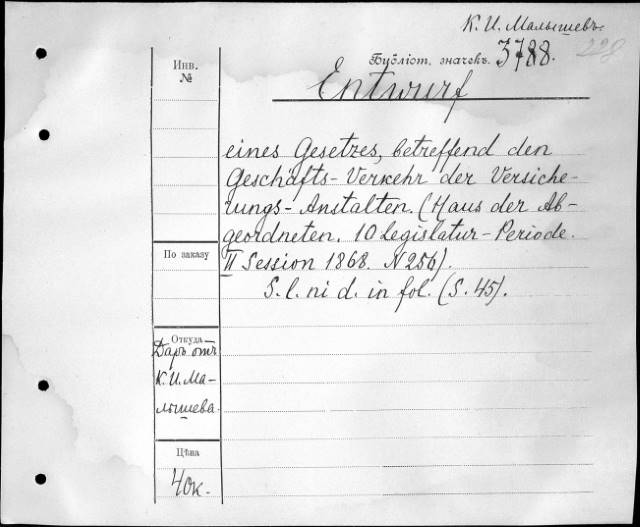 К. И. Малышевъ.
Библіот. значекъ. 3788. 228
Инв.
№
Entwurf
eines Gesetzes, betreffend den
Geschäfts-Verkehr der Versiche-
rungs-Anstalten. (Haus der Ab-
geordneten. 10 Legislatur-Periode.
II Session 1868. N 256).
S. l. ni d. in fol. (S. 45).
По заказу
Откуда
Даръ отъ
К. И. Ма-
лышева.
Цѣна
40к.